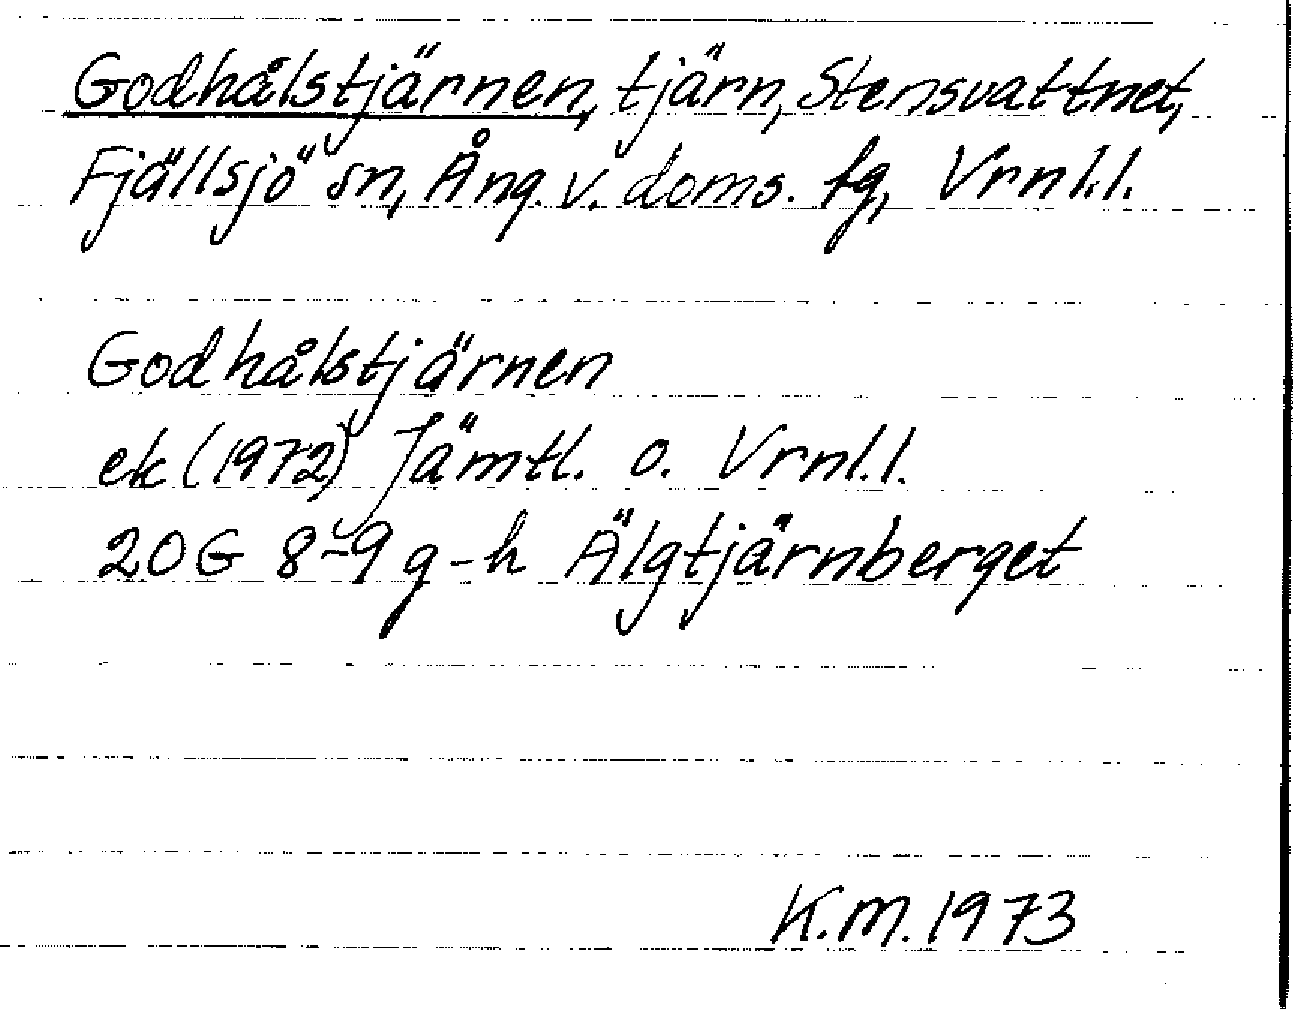 Godhålstjärnen, tjärn, Stensvattnet,
Fjällsjö sn, Ång. v. doms. tg, Vrnl.l.
Godhålstjärnen
ek (1972) Jämtl. o. Vrnl.l.
20G 8-9 g-h Älgtjärnberget
K.M. 1973